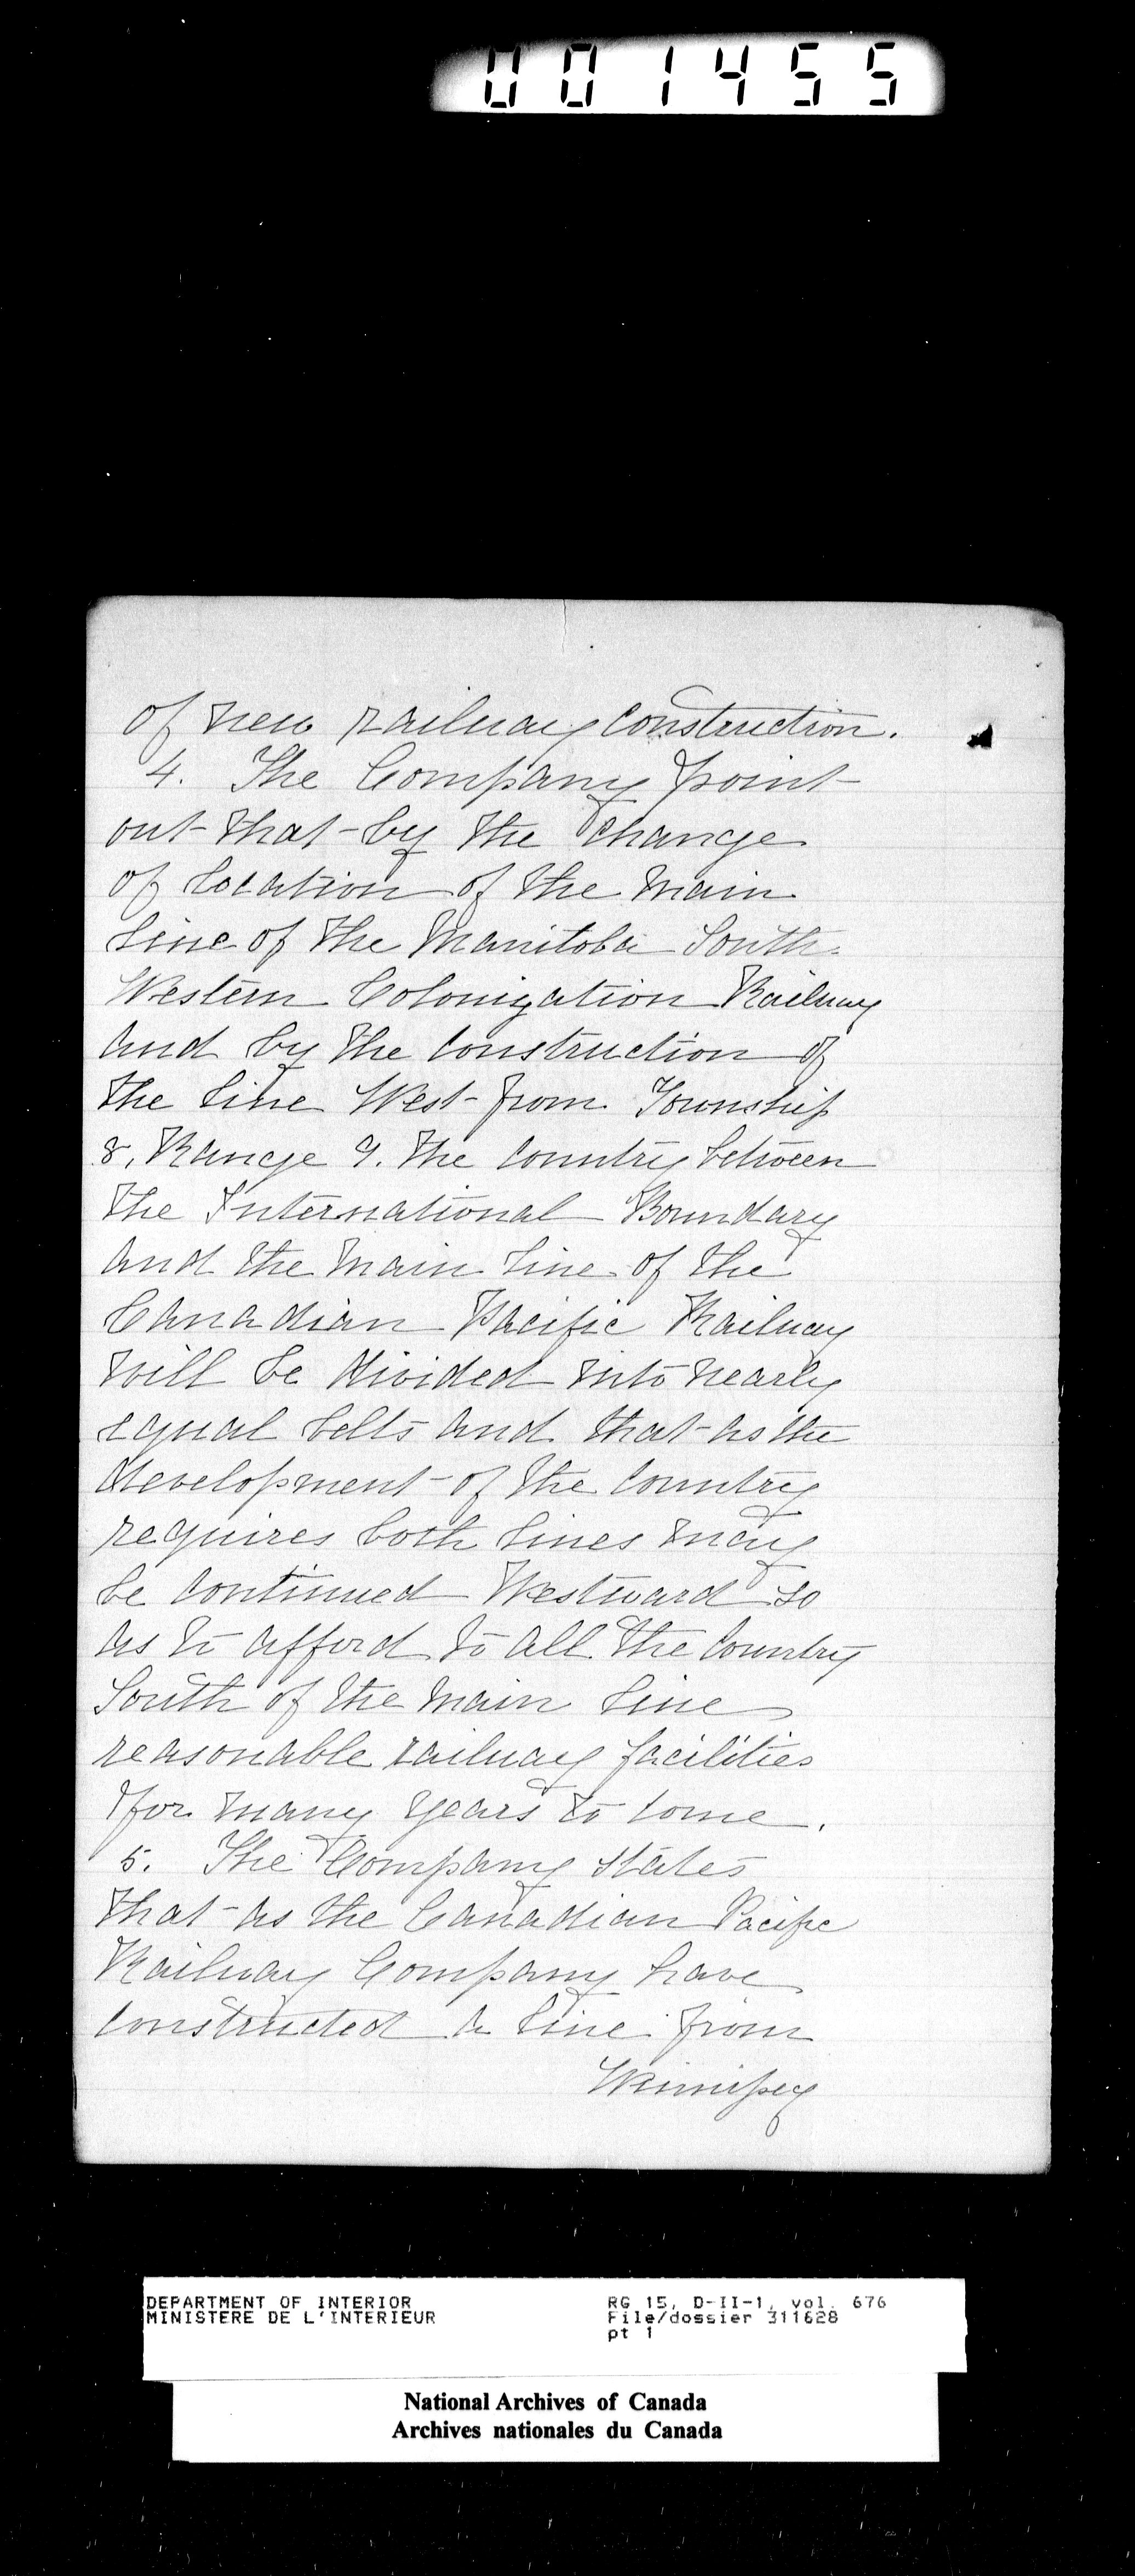 001455
of new railway construction.
4. The Company point
out that by the change
of location of the main
line of the Manitoba South
Western Colonization Railway
and by the construction of
the line West from Township
8, Range 9. the country between
the International Boundary
and the main line of the
Canadian Pacific Railway
will be divided into nearly
equal belts and that as the
development of the country
requires both lines may
be continued Westward so
as to afford to all the country
South of the main line
reasonable railway facilities
for many years to come.
5. The Company states
that as the Canadian Pacific
Railway Company have
constructed a line from
Winnipeg
DEPARTMENT OF INTERIOR
MINISTERE DE L'INTERIEUR
RG 15, D-II-1, vol. 676
File/dossier 311628
pt 1
National Archives of Canada
Archives nationales du Canada